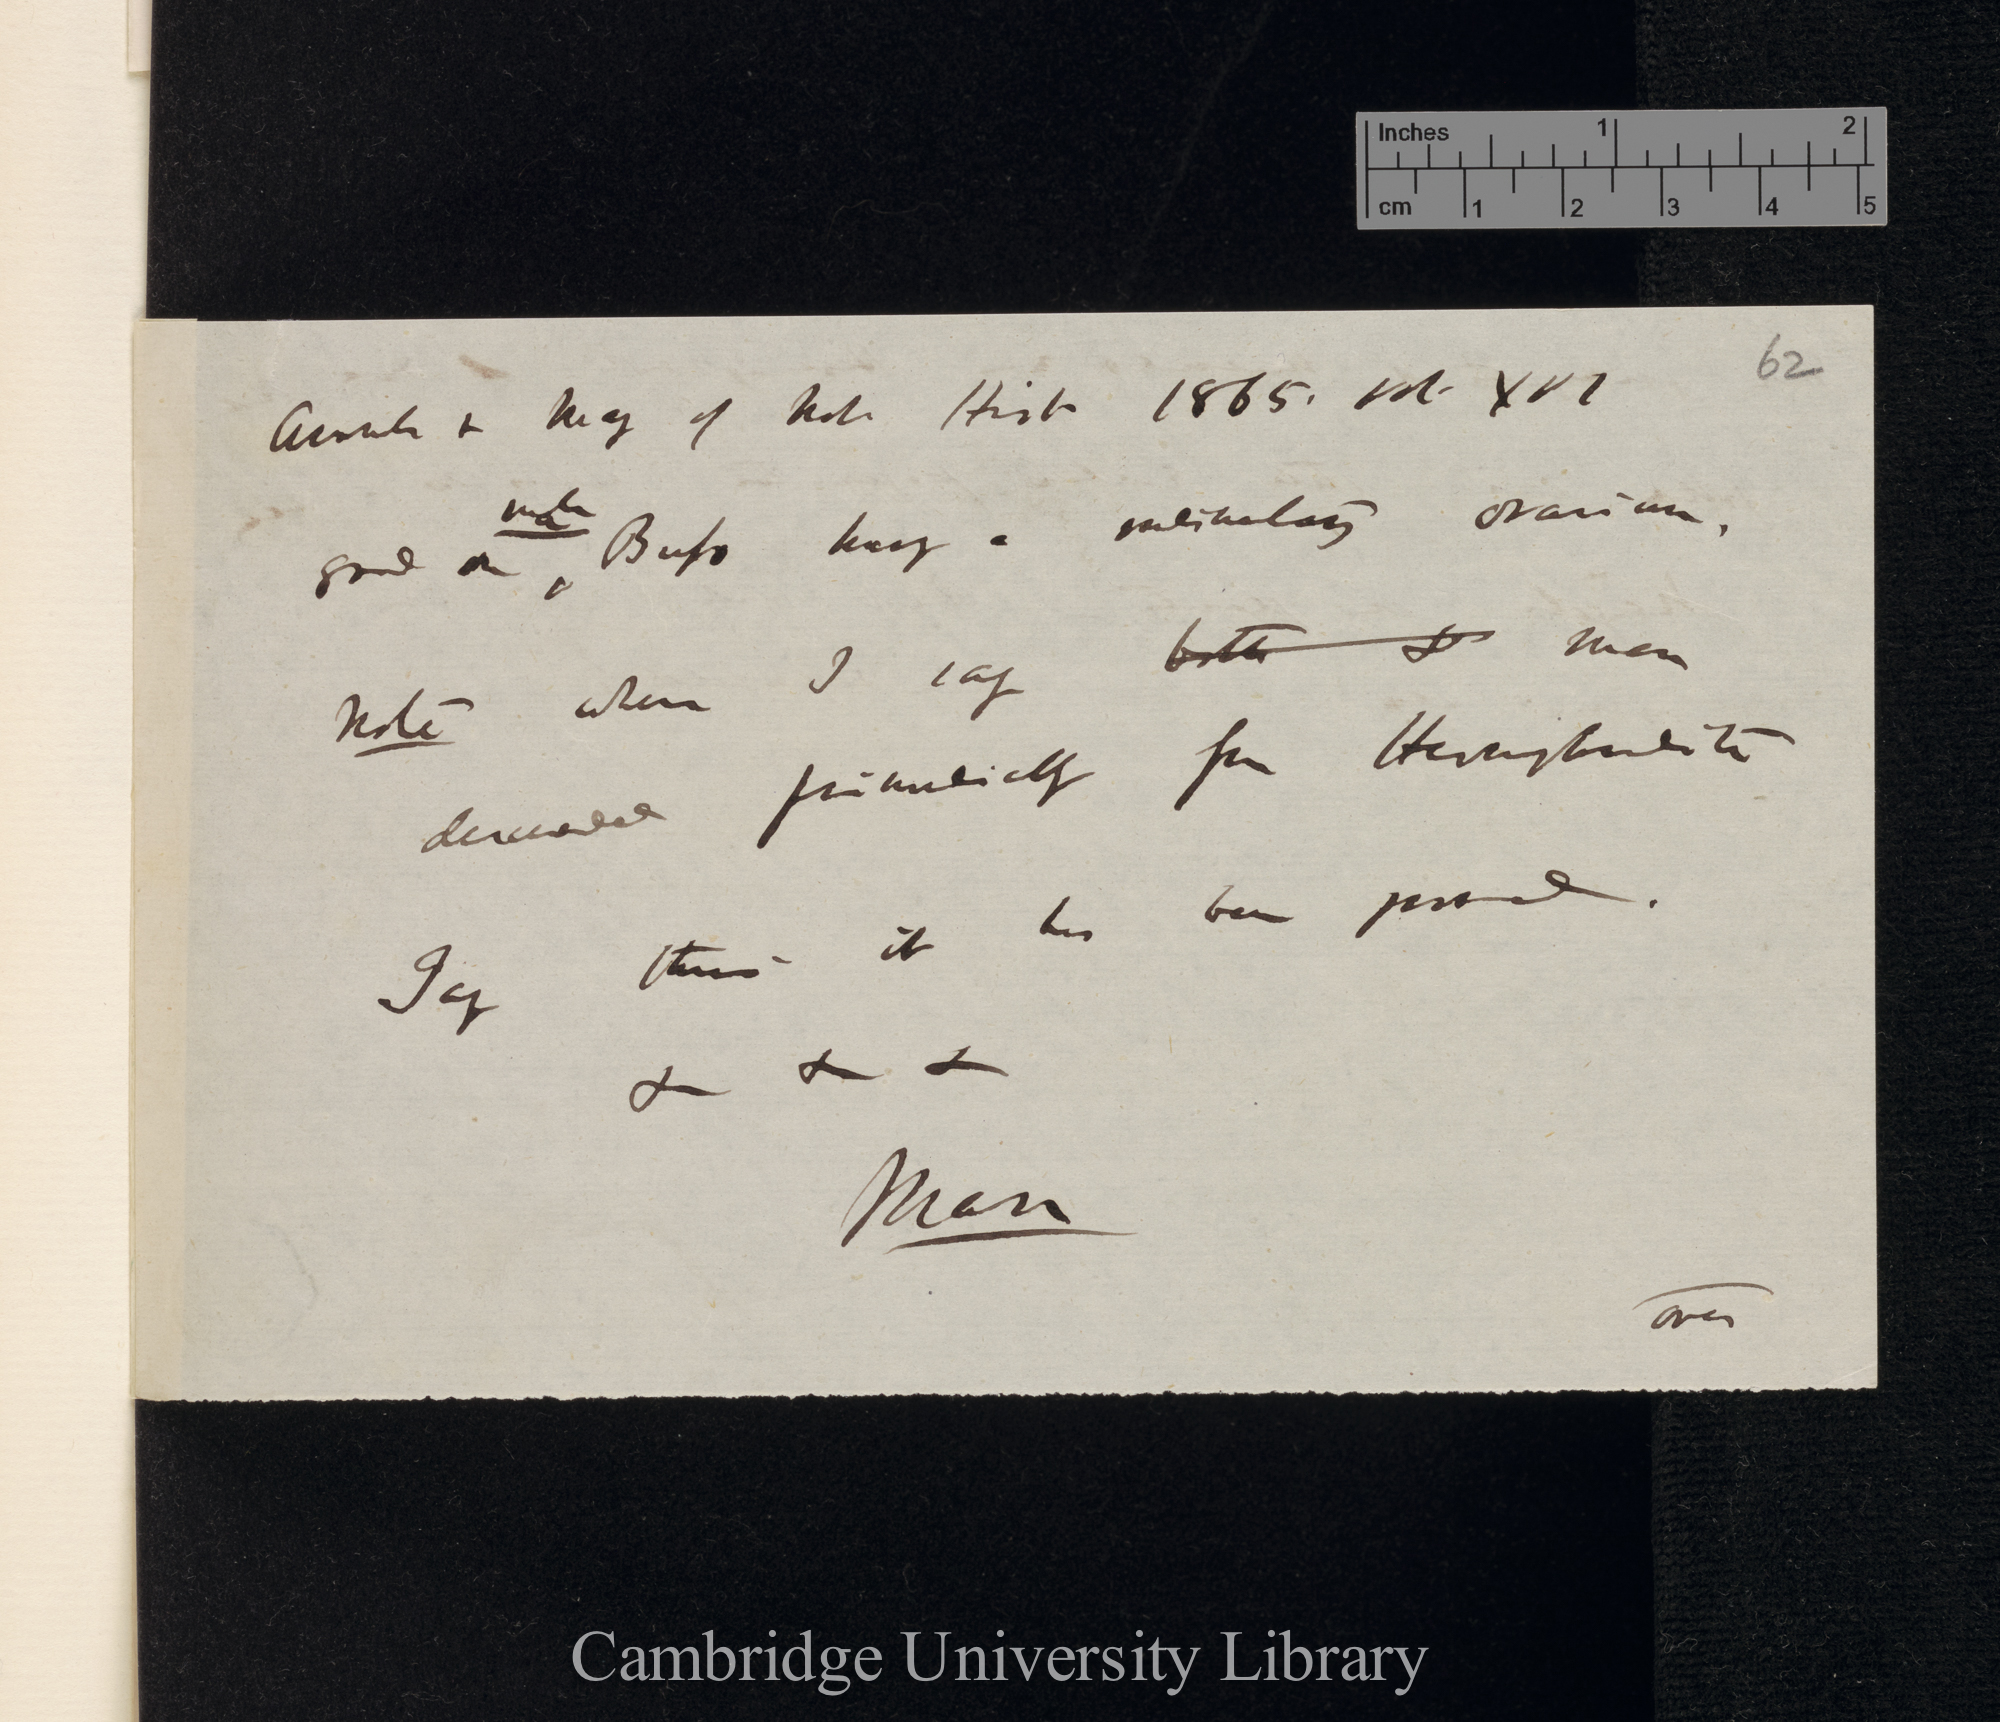 Inches 1 2
cm 1 2 3 4 5
62
Annals & Mag of Nat Hist 1865. vol. XVI
good on male Bufo having a rudimentary ovarium.
Note when I say both & man
descended primordially from Hermaphrodite
Say there it has been proved.
& & &
Man
over
Cambridge University Library